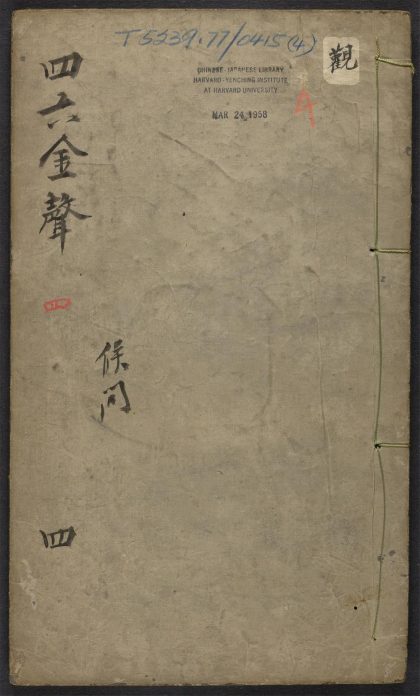 T5239.77/0415(4)
CHINESE-JAPANESE LIBRARY
HARVARD-YENCHING INSTITUTE
AT HARVARD UNIVERSITY
MAR 24 1958
A
觀
四六金聲
四
候問
四